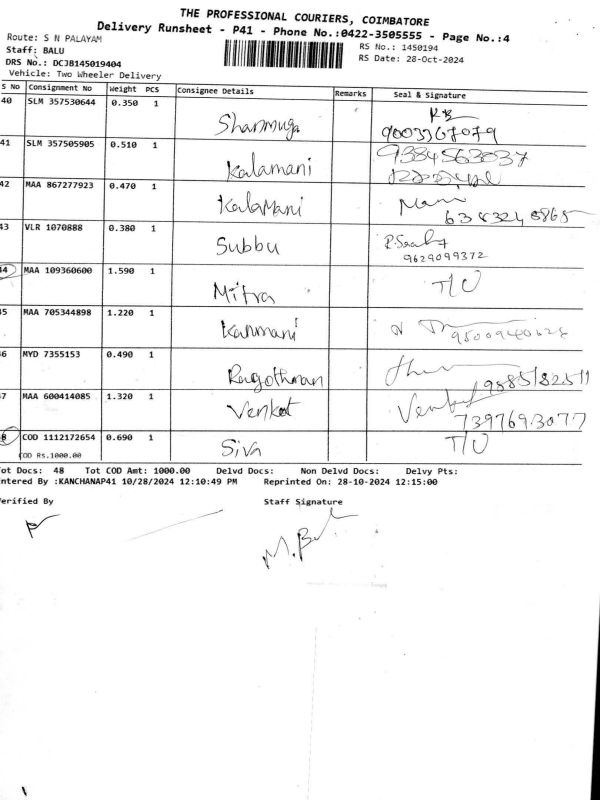 THE PROFESSIONAL COURIERS, COIMBATORE
Delivery Runsheet - P41 - Phone No.:0422-3505555 - Page No.:4
Route: S N PALAYAM
RS No.: 1450194
Staff: BALU
RS Date: 28-Oct-2024
DRS No.: DCJB145019404
Vehicle: Two Wheeler Delivery
S No Consignment No Weight PCS Consignee Details Remarks Seal & Signature
40 SLM 357530644 0.350 1
Shanmuga
9003367079
41 SLM 357505905 0.510 1
Kalamani 9384563037
42 MAA 867277923 0.470 1
Kalamani Mani
43 VLR 1070888 0.380 1
Subbu
9629099372
44 MAA 109360600 1.590 1
Mitra T/U
45 MAA 705344898 1.220 1
Kanmani 9500940628
46 MYD 7355153 0.490 1
Ragothman
47 MAA 600414085 1.320 1
Venkat Venkat
7397693077
48 COD 1112172654 0.690 1
Siva T/U
COD Rs.1000.00
Tot Docs: 48 Tot COD Amt: 1000.00 Delvd Docs: Non Delvd Docs: Delvy Pts:
Entered By :KANCHANAP41 10/28/2024 12:10:49 PM Reprinted On: 28-10-2024 12:15:00
Verified By Staff Signature